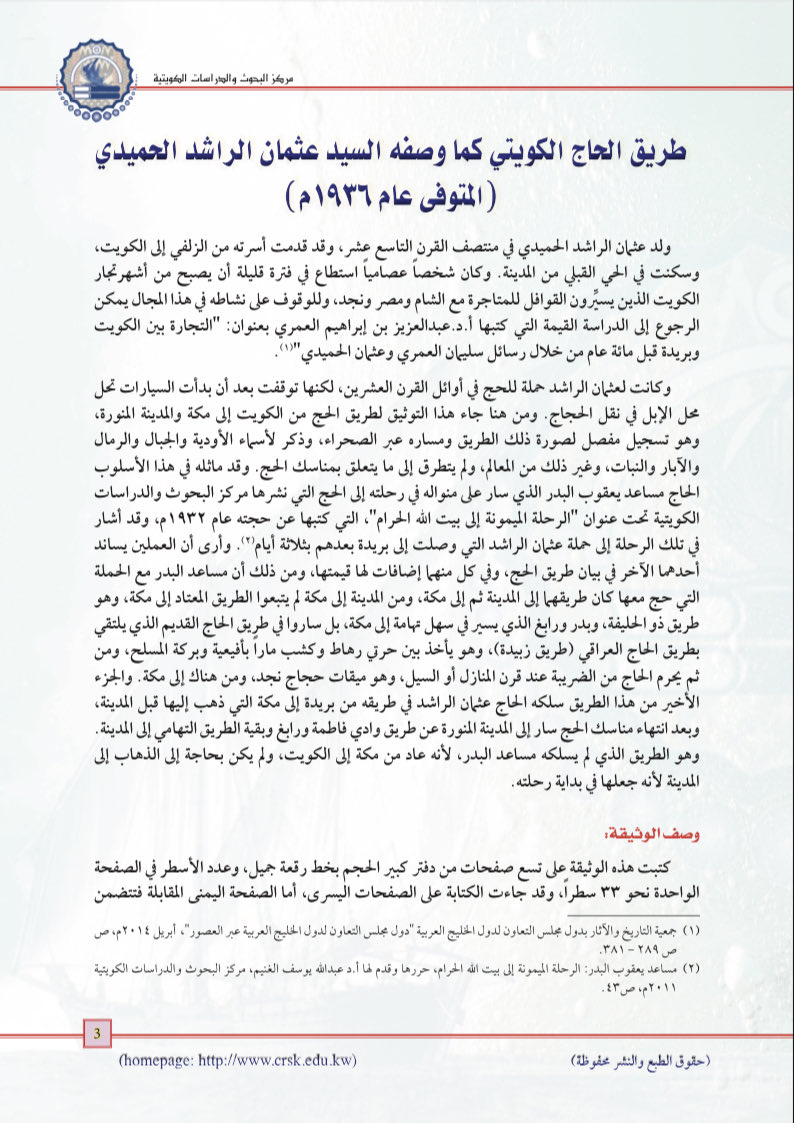 مركز البحوث والدراسات الكويتية
طريق الحاج الكويتي كما وصفه السيد عثمان الراشد الحميدي
(المتوفى عام ١٩٣٦م)
ولد عثمان الراشد الحميدي في منتصف القرن التاسع عشر، وقد قدمت أسرته من الزلفي إلى الكويت،
وسكنت في الحي القبلي من المدينة. وكان شخصاً عصامياً استطاع في فترة قليلة أن يصبح من أشهر تجار
الكويت الذين يسيِّرون القوافل للمتاجرة مع الشام ومصر ونجد، وللوقوف على نشاطه في هذا المجال يمكن
الرجوع إلى الدراسة القيمة التي كتبها أ.د.عبدالعزيز بن إبراهيم العمري بعنوان: "التجارة بين الكويت
وبريدة قبل مائة عام من خلال رسائل سليمان العمري وعثمان الحميدي"(١).
وكانت لعثمان الراشد حملة للحج في أوائل القرن العشرين، لكنها توقفت بعد أن بدأت السيارات تحل
محل الإبل في نقل الحجاج. ومن هنا جاء هذا التوثيق لطريق الحج من الكويت إلى مكة والمدينة المنورة،
وهو تسجيل مفصل لصورة ذلك الطريق ومساره عبر الصحراء، وذكر لأسماء الأودية والجبال والرمال
والآبار والنبات، وغير ذلك من المعالم، ولم يتطرق إلى ما يتعلق بمناسك الحج. وقد ماثله في هذا الأسلوب
الحاج مساعد يعقوب البدر الذي سار على منواله في رحلته إلى الحج التي نشرها مركز البحوث والدراسات
الكويتية تحت عنوان "الرحلة الميمونة إلى بيت الله الحرام"، التي كتبها عن حجته عام ١٩٣٢م، وقد أشار
في تلك الرحلة إلى حملة عثمان الراشد التي وصلت إلى بريدة بعدهم بثلاثة أيام(٢). وأرى أن العملين يساند
أحدهما الآخر في بيان طريق الحج، وفي كل منهما إضافات لها قيمتها، ومن ذلك أن مساعد البدر مع الحملة
التي حج معها كان طريقهما إلى المدينة ثم إلى مكة، ومن المدينة إلى مكة لم يتبعوا الطريق المعتاد إلى مكة، وهو
طريق ذو الحليفة، وبدر ورابغ الذي يسير في سهل تهامة إلى مكة، بل ساروا في طريق الحاج القديم الذي يلتقي
بطريق الحاج العراقي (طريق زبيدة)، وهو يأخذ بين حرتي رهاط وكشب ماراً بأفيعية وبركة المسلح، ومن
ثم يحرم الحاج من الضريبة عند قرن المنازل أو السيل، وهو ميقات حجاج نجد، ومن هناك إلى مكة. والجزء
الأخير من هذا الطريق سلكه الحاج عثمان الراشد في طريقه من بريدة إلى مكة التي ذهب إليها قبل المدينة،
وبعد انتهاء مناسك الحج سار إلى المدينة المنورة عن طريق وادي فاطمة ورابغ وبقية الطريق التهامي إلى المدينة.
وهو الطريق الذي لم يسلكه مساعد البدر، لأنه عاد من مكة إلى الكويت، ولم يكن بحاجة إلى الذهاب إلى
المدينة لأنه جعلها في بداية رحلته.
وصف الوثيقة:
كتبت هذه الوثيقة على تسع صفحات من دفتر كبير الحجم بخط رقعة جميل، وعدد الأسطر في الصفحة
الواحدة نحو ٣٣ سطراً، وقد جاءت الكتابة على الصفحات اليسرى، أما الصفحة اليمنى المقابلة فتتضمن
(١) جمعية التاريخ والآثار بدول مجلس التعاون لدول الخليج العربية "دول مجلس التعاون لدول الخليج العربية عبر العصور"، أبريل ٢٠١٤م، ص
ص ٢٨٩ – ٣٨١.
(٢) مساعد يعقوب البدر: الرحلة الميمونة إلى بيت الله الحرام، حررها وقدم لها أ.د عبدالله يوسف الغنيم، مركز البحوث والدراسات الكويتية
٢٠١١م، ص٤٣.
3
(حقوق الطبع والنشر محفوظة)
(homepage: http://www.crsk.edu.kw)